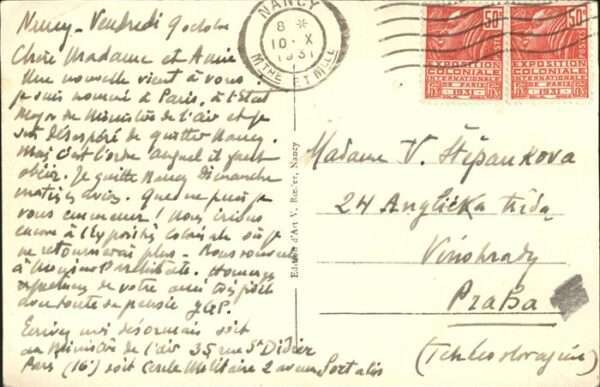 Nancy - Vendredi 9 octobre
Chère Madame et Amie
Une nouvelle vient à vous.
je suis nommé à Paris, à l'Etat
Major du Ministère de l'air et je
suis désespéré de quitter Nancy.
Mais c'est l'ordre auquel il faut
obéir. Je quitte Nancy Dimanche
Que ne puis je
vous emmener ! Nous irions
encore à l'Exposition Coloniale où je
ne retournerai plus -
à Monsieur
de votre ami très
de pensée
Ecrivez moi désormais soit
au Ministère de l'air 35 rue St Didier
Paris (16e) soit Cercle Militaire 2 avenue Portalis
NANCY
8 *
10 - X
1931
MTHE ET MLLE
50c
POSTES
EXPOSITION
COLONIALE
INTERNATIONALE
DE PARIS
1931
50c
POSTES
EXPOSITION
COLONIALE
INTERNATIONALE
DE PARIS
1931
Editions d'Art V. Nancy
Madame V. Štěpankova
24 Anglická třída
Vinohrady
Praha
(Tchécoslovaquie)